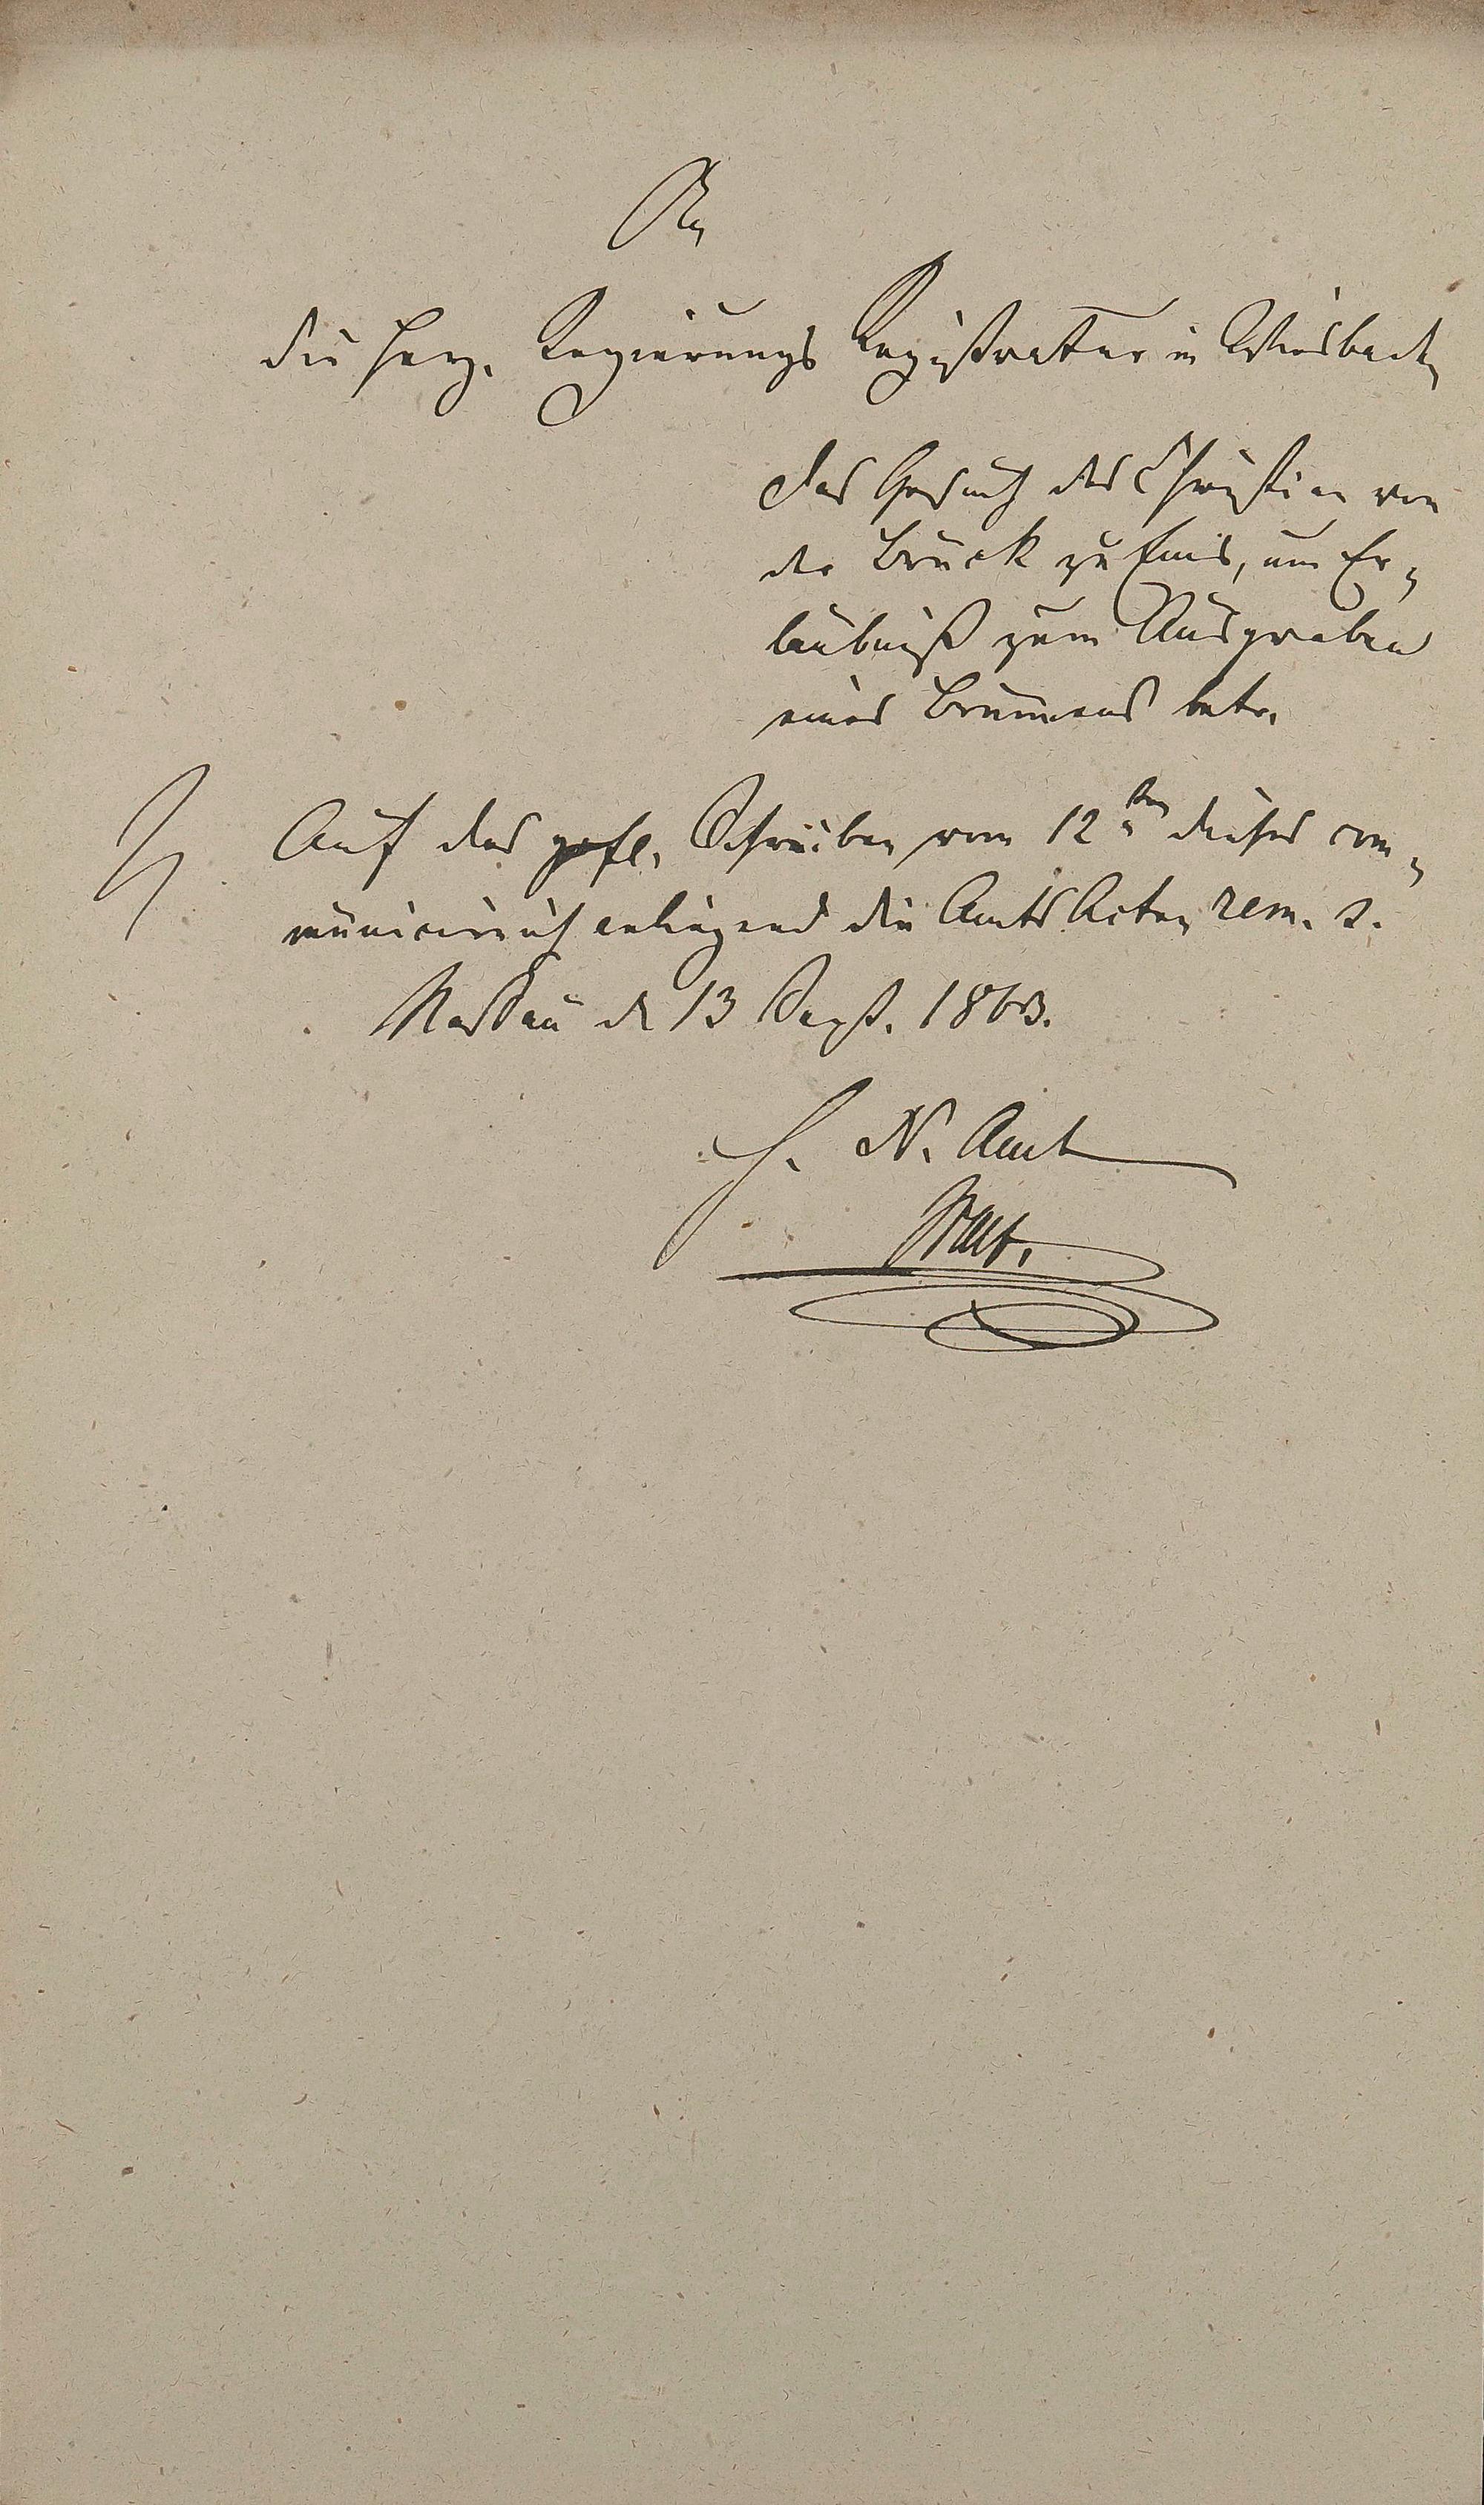 An
die Herz. Regierungs Registratur in Wiesbaden
das Gesuch des Christian von
der Brück zu Ems, um Er-
laubniß zum Ausgraben
eines Brunnens betr.
Auf das gefl. Schreiben vom 12ten dieses com-
municire ich anliegend die Amts Acten rem. s.
Nassau d 13 Sept. 1863.
H. N. Amt